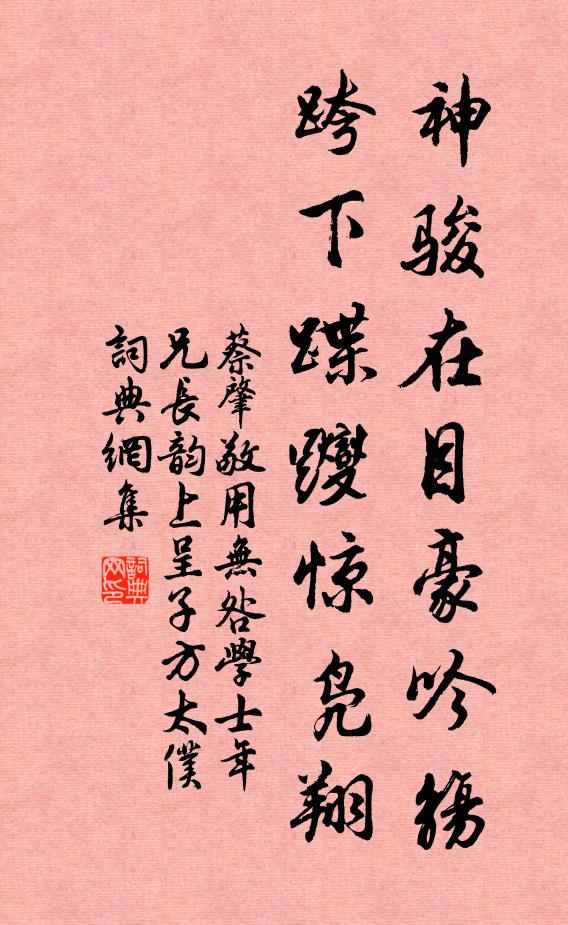 神骏在目豪吟觴
跨下蹀躞惊凫翔
蔡肇敬用無咎學士年
兄長韵上呈子方太僕
詞典網集
詞典网印